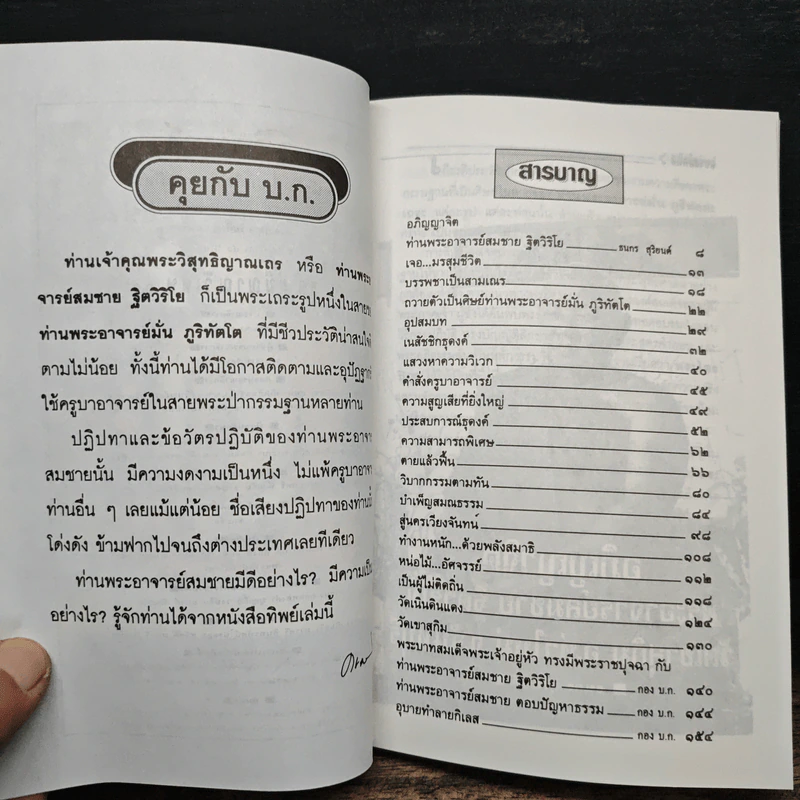 คุยกับ บ.ก.
ท่านเจ้าคุณพระวิสุทธิญาณเถร หรือ ท่านพระ
จารย์สมชาย ฐิตวิริโย ก็เป็นพระเถระรูปหนึ่งในสาย
ท่านพระอาจารย์มั่น ภูริทัตโต ที่มีชีวประวัติน่าสนใจ
ตามไม่น้อย ทั้งนี้ท่านได้มีโอกาสติดตามและอุปัฏฐาก
ใช้ครูบาอาจารย์ในสายพระป่ากรรมฐานหลายท่าน
ปฏิปทาและข้อวัตรปฏิบัติของท่านพระอาจา
สมชายนั้น มีความงดงามเป็นหนึ่ง ไม่แพ้ครูบาอาจา
ท่านอื่น ๆ เลยแม้แต่น้อย ชื่อเสียงปฏิปทาของท่าน
โด่งดัง ข้ามฟากไปจนถึงต่างประเทศเลยทีเดียว
ท่านพระอาจารย์สมชายมีดีอย่างไร? มีความเป็
อย่างไร? รู้จักท่านได้จากหนังสือทิพย์เล่มนี้
สารบาญ
อภิญญาจิต
ท่านพระอาจารย์สมชาย ฐิตวิริโย ธนกร สุริยนต์ ๘
เจอ...มรสุมชีวิต ๑๓
บรรพชาเป็นสามเณร ๑๘
ถวายตัวเป็นศิษย์ท่านพระอาจารย์มั่น ภูริทัตโต ๒๒
อุปสมบท ๒๙
เนสัชชิกธุดงค์ ๓๒
แสวงหาความวิเวก ๔๐
คำสั่งครูบาอาจารย์ ๔๕
ความสูญเสียที่ยิ่งใหญ่ ๔๙
ประสบการณ์ธุดงค์ ๕๒
ความสามารถพิเศษ ๖๒
ตายแล้วฟื้น ๖๖
วิบากกรรมตามทัน ๘๐
บำเพ็ญสมณธรรม ๘๔
สู่นครเวียงจันทน์ ๙๘
ทำงานหนัก...ด้วยพลังสมาธิ ๑๐๘
หน่อไม้...อัศจรรย์ ๑๑๒
เป็นผู้ไม่ติดถิ่น ๑๑๘
วัดเนินดินแดง ๑๒๔
วัดเขาสุกิม ๑๓๐
พระบาทสมเด็จพระเจ้าอยู่หัว ทรงมีพระราชปุจฉา กับ
ท่านพระอาจารย์สมชาย ฐิตวิริโย กอง บ.ก. ๑๔๐
ท่านพระอาจารย์สมชาย ตอบปัญหาธรรม กอง บ.ก. ๑๔๔
อุบายทำลายกิเลส กอง บ.ก. ๑๕๔